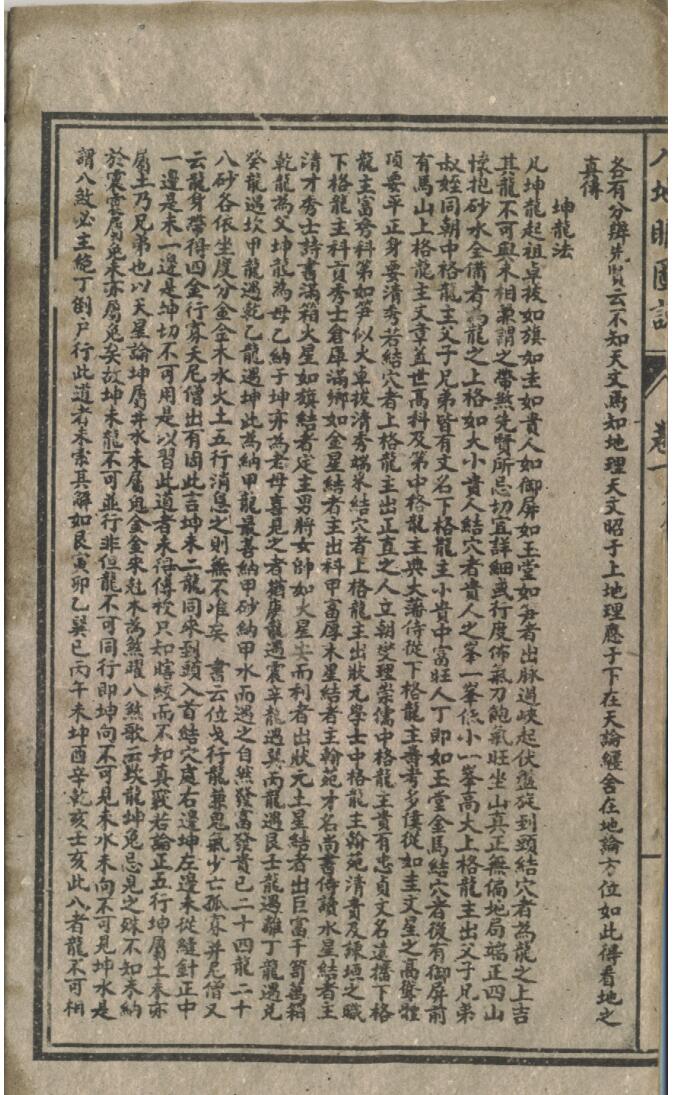 各有分辨先賢云不知天文焉知地理天文昭于上地理應于下在天論纏舍在地論方位如此得看地之
真傳
坤龍法
凡坤龍起祖卓拔如旗如圭如貴人如御屏如玉堂如笋者出脉過峽起伏盤旋到頭結穴者為龍之上吉
其龍不可與未相兼謂之帶煞先賢所忌切宜詳細或行度佈氣刀飽氣旺坐山真正無偏地局端正四山
懷抱砂水全備者為龍之上格如大小貴人結穴者貴人之峯一峯低小一峯高大上格龍主出父子兄弟
叔姪同朝中格龍主父子兄弟皆有文名下格龍主小貴中富旺人丁即如玉堂金馬結穴者後有御屏前
有馬山上格龍主文章蓋世高科及第中格龍主典大藩侍從下格龍主壽考多僮從如圭文星之高聳體
項要平正身要清秀若結穴者上格龍主出正直之人立朝燮理崇儒中格龍主貴有忠貞文名遠播下格
龍主富秀科第如笋似火卓拔清秀端
結穴者上格龍主出狀元學士中格龍主翰苑清貴及諫垣之職
下格龍主科貢秀士倉庫滿鄉如金星結者主出科甲富厚木星結者主翰苑才名尚書侍讀水星結者主
清才秀士詩書滿箱火星如旗結者定主男將女帥如火星尖而利者出狀元土星結者出巨富千笥萬箱
乾龍為父坤龍為母乙納于坤亦為老母喜見之者猶庚龍遇震辛龍遇巽丙龍遇艮壬龍遇離丁龍遇兌
癸龍遇坎甲龍遇乾乙龍遇坤此為納甲龍最善納甲砂納甲水而遇之自然發富發貴已二十四龍二十
八砂各依坐度分金金木水火土五行消息之則無不唯矣 書云位
行龍兼鬼氣少亡孤寡并尼僧又
云龍身帶得四金行寡夭尼僧出有因此吉坤未二龍同來到頭入首結穴處右邊坤左邊未從縫針正中
一邊是未一邊是坤切不可用是以習此道者未得傳授只知瞎綫而不知真竅若論正五行坤屬土未亦
屬土乃兄弟也以天星論坤屬井水未屬鬼金金來尅木為煞曜八煞歌云坎龍坤兔忌見之殊不知未納
於震震屬兔未亦屬兔矣故坤未龍不可並行非但龍不可同行即坤向不可見未水未向不可見坤水是
謂八煞必主絕丁倒戶行此道者未索其解如艮寅卯乙巽巳丙午未坤酉辛乾亥壬亥此八者龍不可相
卷一